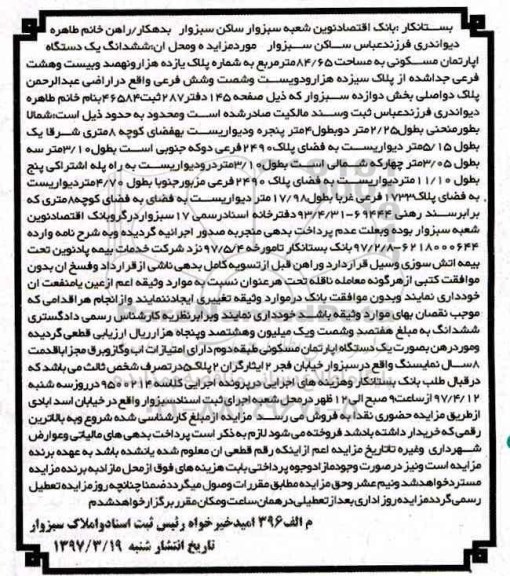 بستانکار :بانک اقتصادنوین شعبه سبزوار ساکن سبزوار بدهکار/راهن خانم طاهره
دیواندری فرزندعباس ساکن سبزوار موردمزایده ومحل ان:ششدانگ یک دستگاه
اپارتمان مسکونی به مساحت ۸۴/۶۵مترمربع به شماره پلاک یازده هزارونهصد وبیست وهشت
فرعی جداشده از پلاک سیزده هزارودویست وشصت وشش فرعی واقع دراراضی عبدالرحمن
پلاک دواصلی بخش دوازده سبزوار که ذیل صفحه ۱۴۵دفتر۲۸۷ثبت۴۶۵۸۴بنام خانم طاهره
دیواندری فرزندعباس ثبت وسند مالکیت صادرشده است ومحدود به حدود ذیل است:شمالا
بطورمنحنی بطول۲/۲۵متر دوبطول۴متر پنجره ودیواریست بهفضای کوچه ۸متری شرقا یک
بطول ۵/۱۵متر دیواریست به فضای پلاک۲۴۹۰ فرعی دوکه جنوبی است بطول۳/۱۰متر سه
بطول ۳/۰۵متر چهارکه شمالی است بطول۳/۱۰متردرودیواریست به راه پله اشتراکی پنج
بطول ۱۱/۱۰متردیواریست به فضای پلاک ۲۴۹۰فرعی مزبورجنوبا بطول ۴/۷۰متردیواریست
به فضای پلاک۱۷۳۳فرعی غربا بطول۱۷/۹۸متر دیواریست به فضای به فضای کوچه۸متری که
برابرسند رهنی ۶۹۴۴۴-۹۳/۴/۳۱دفترخانه اسنادرسمی ۱۷سبزواردرگروبانک اقتصادنوین
شعبه سبزوار بوده وبعلت عدم پرداخت بدهی منجربه صدور اجرائیه گردیده وبه شرح نامه وارده
۶۲۱۸۰۰۰۶۴۴-۹۷/۲/۸ بانک بستانکار تامورخه ۹۷/۵/۴ نزد شرکت خدمات بیمه پلدنوین تحت
بیمه اتش سوزی وسیل قرارداردو راهن قبل ازتسویه کامل بدهی ناشی ازقرارداد وفسخ ان بدون
موافقت کتبی ازهرگونه معامله ناقله تحت هرعنوان نسبت به موارد وثیقه اعم ازعین یامنفعت ان
خودداری نمایند وبدون موافقت بانک درموارد وثیقه تغییری ایجادننمایند وازانجام هراقدامی که
موجب نقصان بهای موارد وثیقه باشد خودداری نمایند وبرابرنظریه کارشناس رسمی دادگستری
ششدانگ به مبلغ هفتصد وشصت ویک میلیون وهشتصد وپنجاه هزارریال ارزیابی قطعی گردیده
وموردرهن بصورت یک دستگاه اپارتمان مسکونی طبقه دوم دارای امتیازات اب وگازوبرق مجزاباقدمت
۸سال نمایسنگ واقع درسبزوار خیابان فجر ۲ایثارگران ۲پلاک۵درتصرف شخص ثالث می باشدکه
درقبال طلب بانک بستانکار وهزینه های اجرایی درپرونده اجرایی کلاسه ۹۵۰۰۲۱۴ درروزسه شنبه
۹۷/۴/۱۲ ازساعت۹ صبح الی۱۲ ظهر درمحل شعبه اجرای ثبت اسنادسبزوار واقع درخیابان اسدابادی
ازطریق مزایده حضوری نقدا به فروش می رسد مزایده ازمبلغ کارشناسی شده شروع وبه بالاترین
رقمی که خریدار داشته بادشد فروخته می شود لازم به ذکر است پرداخت بدهی های مالیاتی وعوارض
شهرداری وغیره تاتاریخ مزایده اعم ازاینکه رقم قطعی ان معلوم شده یانشده باشد به عهده برنده
مزایده است ونیز درصورت وجودمازادوجوه پرداختی بابت هزینه های فوق ازمحل مازادبه برنده مزایده
مستردخواهدشد ونیم عشر وحق مزایده مطابق مقررات وصول میگرددضمنا چنانچه روزمزایده تعطیل
رسمی گرددمزایده روز اداری بعدازتعطیلی درهمان ساعت ومکان مقرربرگزارخواهدشدم
م الف۳۹۶ امیدخیرخواه رئیس ثبت اسنادواملاک سبزوار
تاریخ انتشار شنبه ۱۳۹۷/۳/۱۹